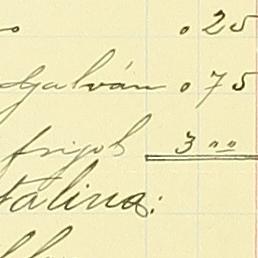 . 25
Galván . 75
frijol 3 00
talina: